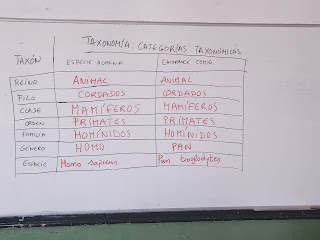 TAXONOMÍA. CATEGORÍAS TAXONÓMICAS
TAXÓN ESPECIE HUMANA CHIMPANCÉ COMÚN
REINO ANIMAL ANIMAL
FILO CORDADOS CORDADOS
CLASE MAMÍFEROS MAMÍFEROS
ORDEN PRIMATES PRIMATES
FAMILIA HOMÍNIDOS HOMÍNIDOS
GÉNERO HOMO PAN
ESPECIE Homo sapiens Pan troglodytes